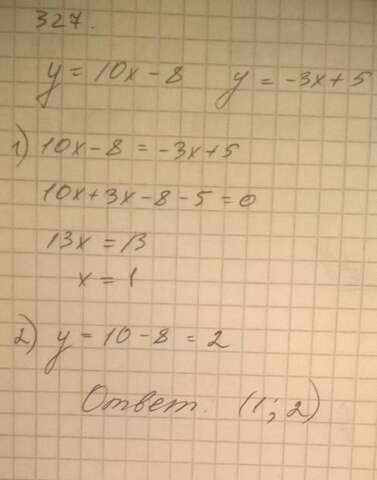 327.
y = 10x - 8    y = -3x + 5
1) 10x - 8 = -3x + 5
10x + 3x - 8 - 5 = 0
13x = 13
x = 1
2) y = 10 - 8 = 2
Ответ. (1; 2)